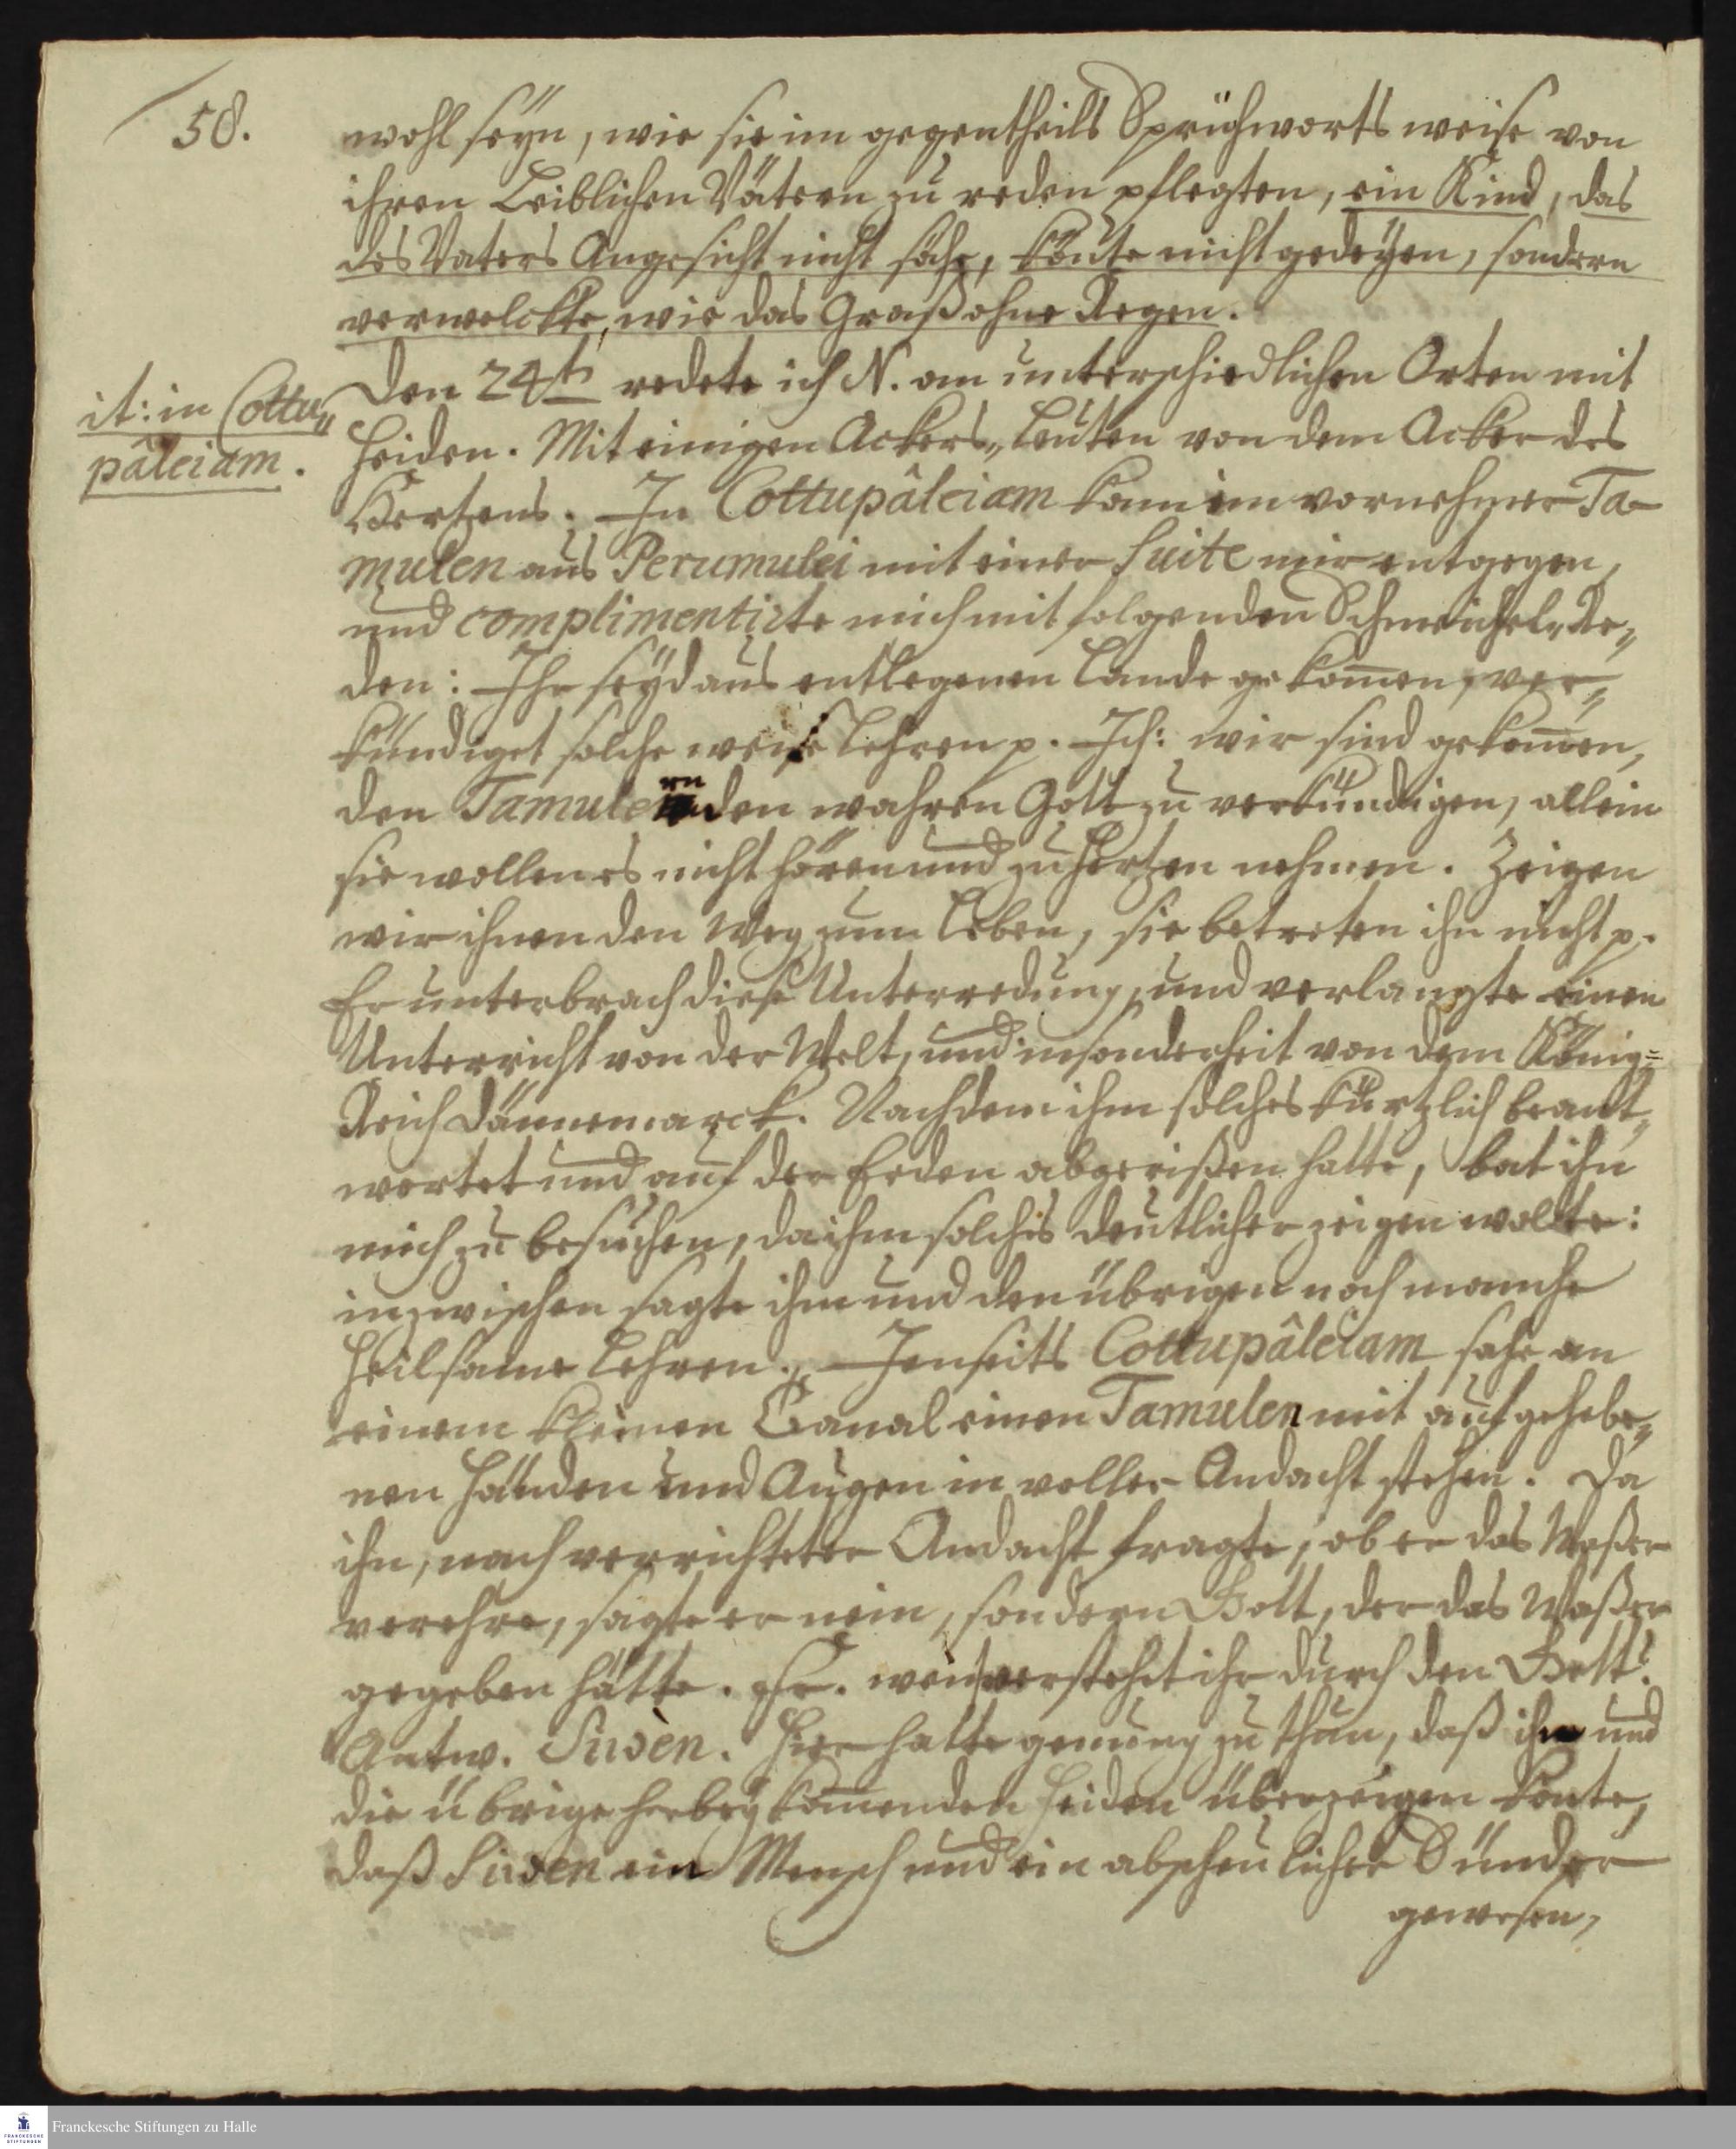 58.
wohl seyn, wie sie im gegentheils Sprüchworts weise von
ihren Leiblichen Vätern zu reden pflegten, ein Kind, das
des Vaters Angesicht nicht sähe, könte nicht gedeyen, sondern
verwelckte, wie das Graß ohne Regen.
it: in Cottu„
pâleiam.
Den 24t redete ich N. an unterschiedlichen Orten mit
Heiden. Mit einigen Ackers„Leuten von dem Acker des
Hertzens. In Cottupâleiam kam ein vornehmer Ta-
mulen aus Perumulei mit einer Suite mir entgegen,
und complimentirte mich mit folgenden Schmeichel„Re„
den: Ihr seyd aus entlegenen Lande gekom̅en, ver„
kündiget solche weise Lehren p. Ich: wir sind gekom̅en,
den Tamulern den wahren Gott zu verkündigen, allein
sie wollen es nicht hören und zu Hertzen nehmen. Zeigen
wir ihnen den Weg zum Leben, sie betreten ihn nicht p.
Er unterbrach diese Unterredung, und verlangte einen
Unterricht von der Welt, und insonderheit von dem König=
Reich Dännemarck. Nachdem ihm solches kürtzlich beant„
wortet und auf der Erden abgerißen hatte, bat ihn
mich zu besuchen, da ihm solches deutlicher zeigen wolte:
inzwischen sagte ihm und den übrigen noch manche
heilsame Lehren. Jenseits Cottupâleiam sahe an
einem kleinen Canal einen Tamulen mit aufgehobe„
nen Händen und Augen in voller Andacht stehen. Da
ihn, nach verrichteter Andacht fragte, ob er das Waßer
verehre, sagte er nein, sondern Gott, der das Waßer
gegeben hätte. Fr. wen verstehet ihr durch den Gott?
Antw. Siuèn. Hier hatte genung zu thun, daß ihn und
die übrige herbey kom̅enden Heiden überzeugen konte,
daß Siuèn ein Mensch und ein abscheulicher Sünder
gewesen,
Franckesche Stiftungen zu Halle